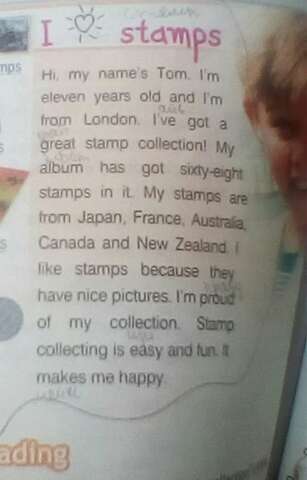 I stamps
mps
Hi, my name's Tom. I'm
eleven years old and I'm
from London. I've got a
great stamp collection! My
album has got sixty-eight
stamps in it. My stamps are
from Japan, France, Australia,
Canada and New Zealand. I
like stamps because they
have nice pictures. I'm proud
of my collection. Stamp
collecting is easy and fun. It
makes me happy.
ading